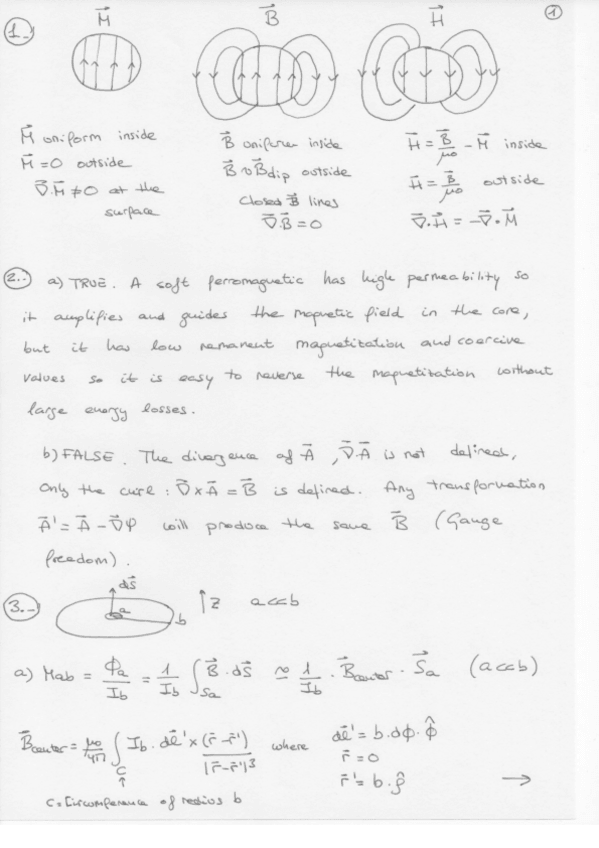 ①
1.-
M⃗ B⃗ H⃗
M⃗ uniform inside
M⃗ = 0 outside
∇⃗.M⃗ ≠ 0 at the
surface
B⃗ uniform inside
B⃗ ~ B⃗dip outside
Closed B⃗ lines
∇⃗.B⃗ = 0
H⃗ = B⃗/μ₀ - M⃗ inside
H⃗ = B⃗/μ₀ outside
∇⃗.H⃗ = -∇⃗.M⃗
2.- a) TRUE. A soft ferromagnetic has high permeability so
it amplifies and guides the magnetic field in the core,
but it has low remanent magnetization and coercive
values so it is easy to reverse the magnetization without
large energy losses.
b) FALSE. The divergence of A⃗, ∇⃗.A⃗ is not defined,
Only the curl: ∇⃗×A⃗ = B⃗ is defined. Any transformation
A⃗' = A⃗ - ∇⃗φ will produce the same B⃗ (Gauge
freedom).
3.- dS⃗ a b ↑z a<<b
a) Mab = ϕa/Ib = 1/Ib ∫Sa B⃗.dS⃗ ≃ 1/Ib . B⃗center . S⃗a (a<<b)
B⃗center = μ₀/4π ∫C Ib . dl⃗' × (r⃗-r⃗')/|r⃗-r⃗'|³ where dl⃗' = b.dϕ.ϕ̂
r⃗ = 0
r⃗' = b.ρ̂ →
C = Circumference of radius b